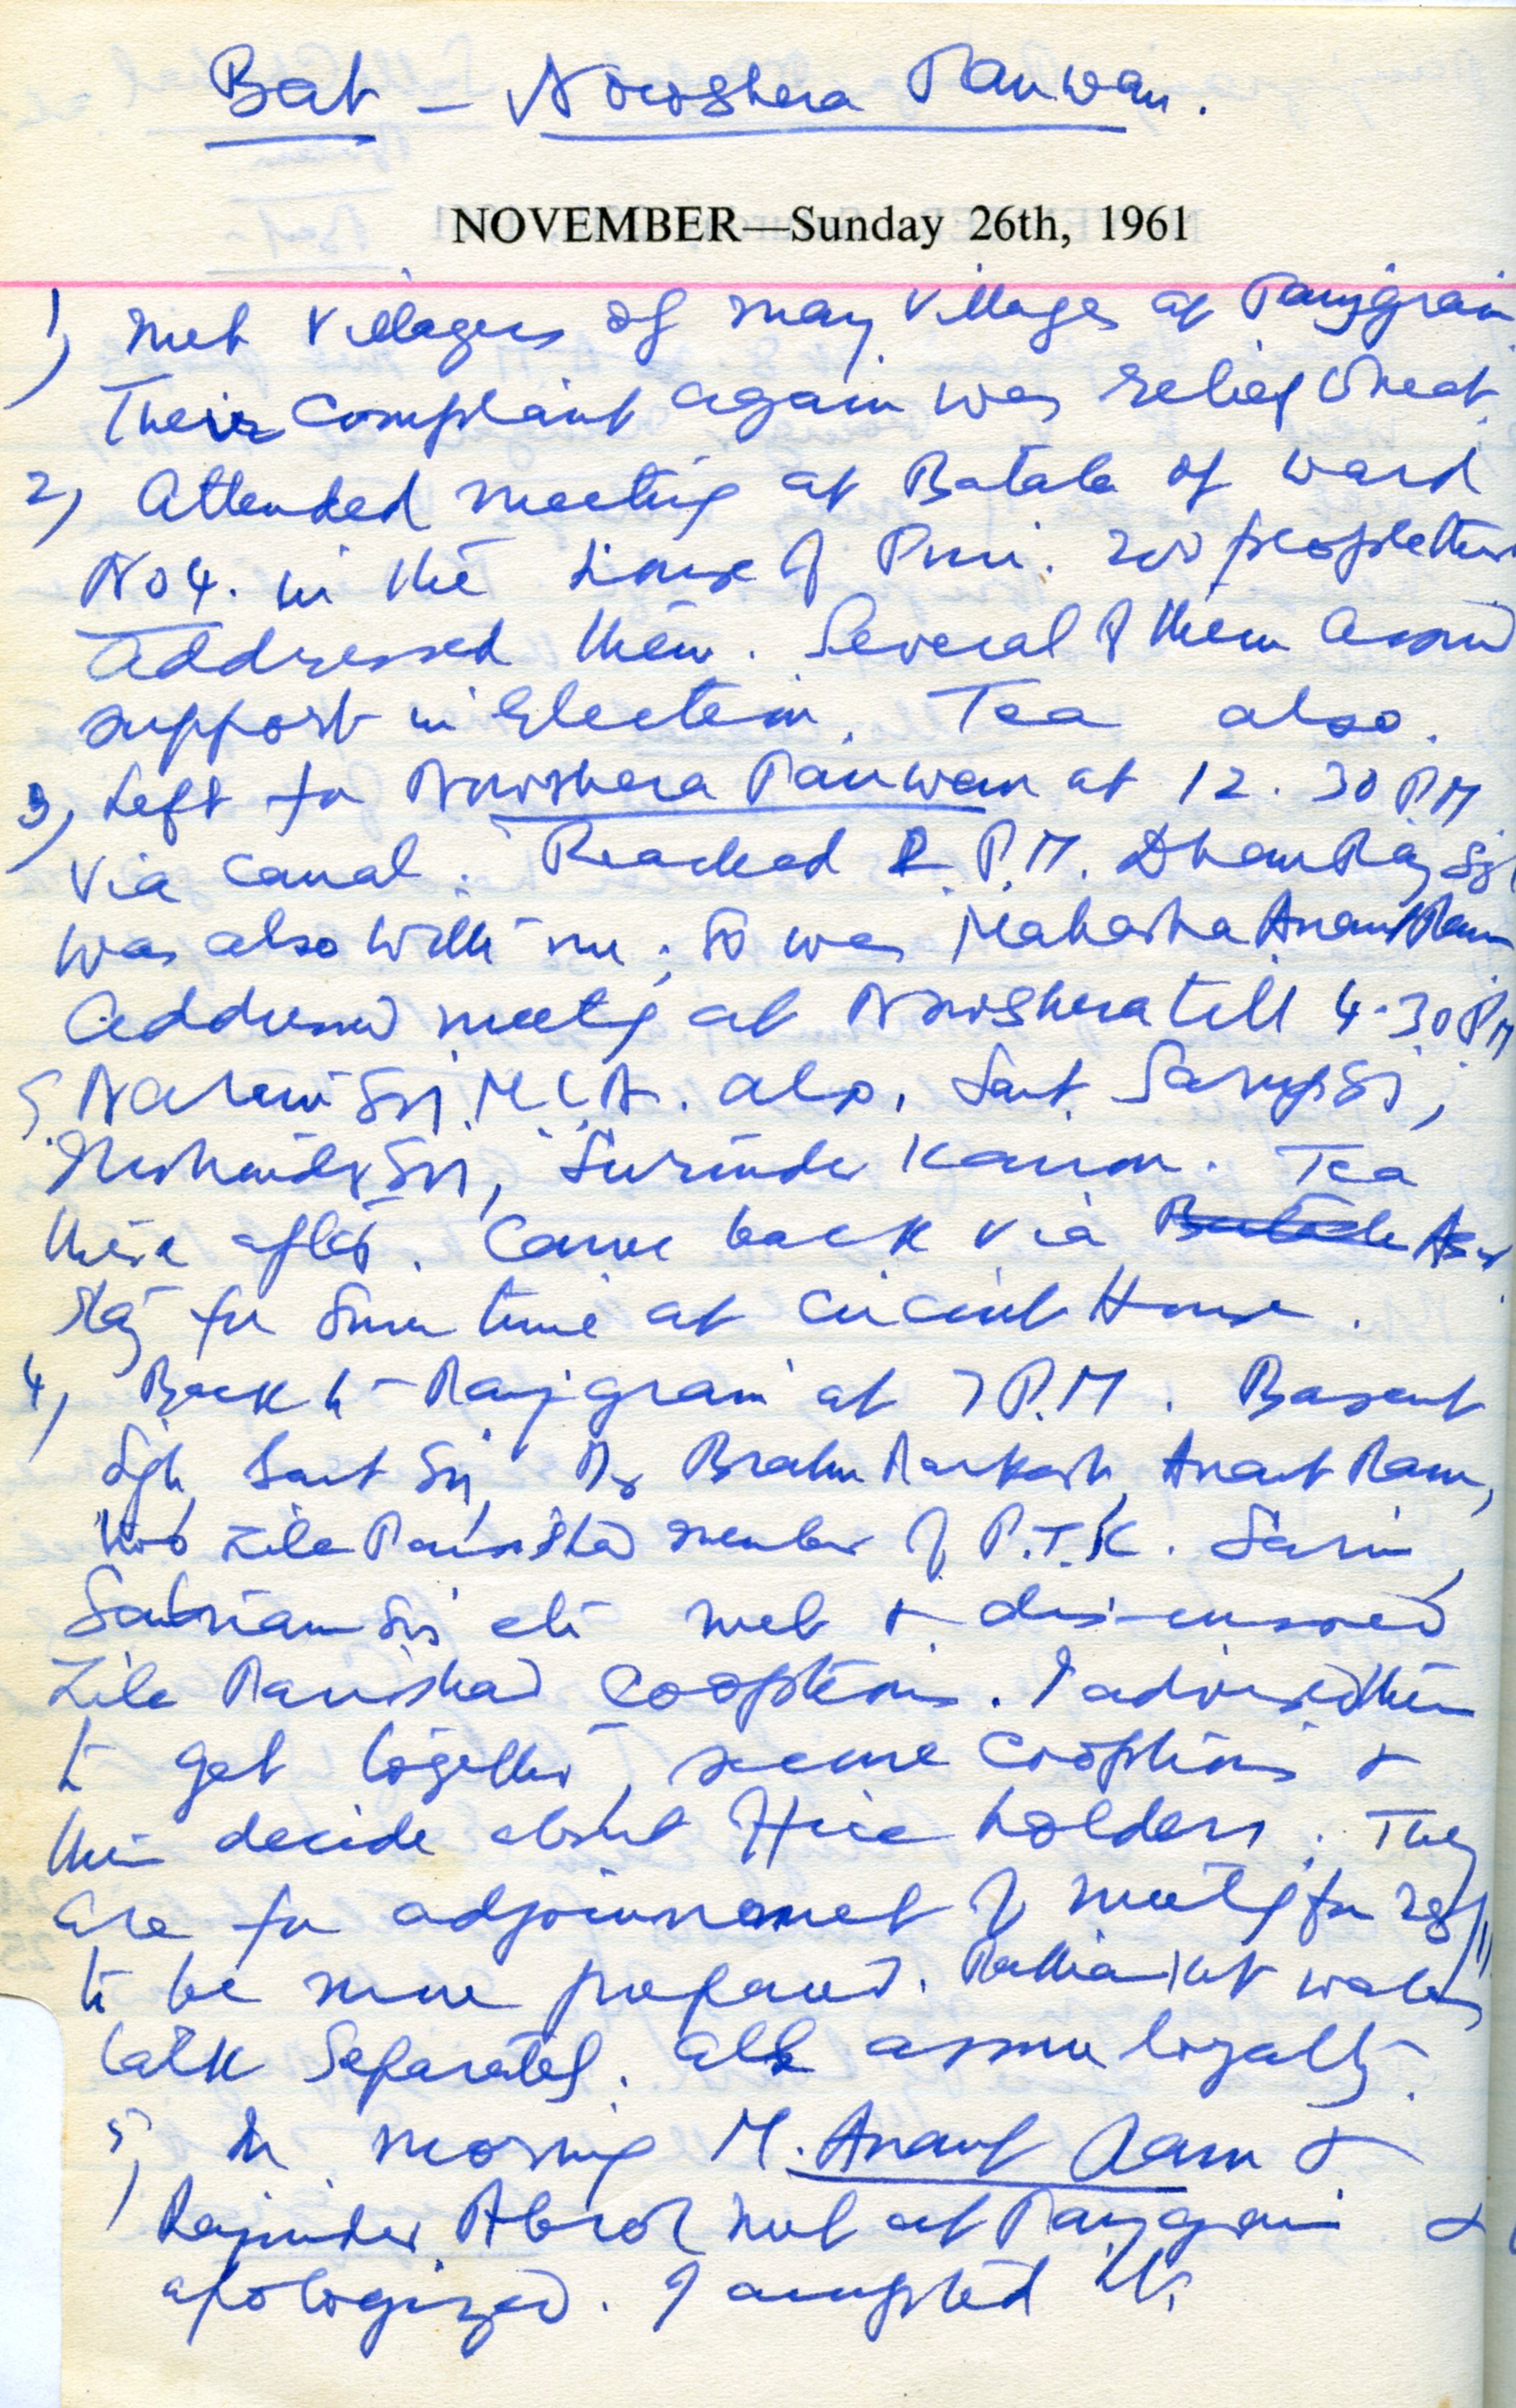 Bat - Nowshera Panwan.
NOVEMBER—Sunday 26th, 1961
1) Met villagers of many villages at Panjgrain
Their complaint again was relief wheat.
2) Attended meeting at Batala of ward
No 4. in the house of Puri. 200 people there
addressed them. Several of them assured
support in Election. Tea also.
3) Left for Nowshera Panwan at 12.30 PM
via canal. Reached 2 P.M. Dhanraj Sgh
was also with me; so was Mahasha Anant Ram
Addressed meeting at Nowshera till 4.30 PM
S. Narain Sgh M.L.A. also. Sant Sarup Sgh,
Sgh, Surinder Kairon. Tea
there after. Came back via Batala Asr
stay for some time at Circuit House.
4) Back to Panjgrain at 7 P.M. Basant
Sgh, Sant Sgh, Dr Brahm Parkash, Anant Ram,
two Zila Parishad member of P.T.K. Sarin,
Satnam Sgh etc met & discussed
Zila Parishad cooptions. I advised them
to get together, secure cooptions &
then decide about office holders. They
are for adjournment of meeting for 28/11
to be more prepared. walas
talk separately. all assure loyalty.
5) In morning M. Anant Ram &
Rajinder Abrol met at Panjgrain &
apologized. I accepted it.